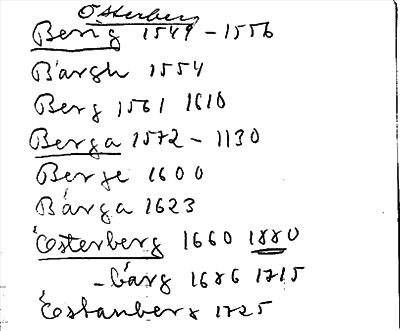 Osterberg
Berg 1549-1556
Bärgh 1554
Berg 1561 1610
Berga 1572-1130
Berge 1600
Bårga 1623
Österberg 1660 1880
-bärg 1686 1715
Östanberg 1725